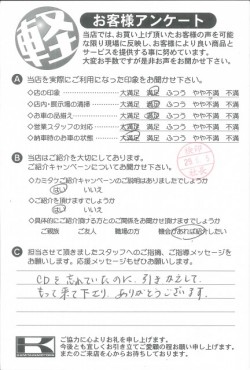 軽
お客様アンケート
当店では、お買い上げ頂いたお客様の声を可能
な限り現場に反映し、お客様により良い商品と
サービスを提供する事に努めています。
大変お手数ですが是非お声をお聞かせ下さい。
A 当店を実際にご利用になった印象をお聞かせ下さい。
◇店の印象 大満足 満足 ふつう やや不満 不満
◇店内・展示場の清掃 大満足 満足 ふつう やや不満 不満
◇お車の品揃え 大満足 満足 ふつう やや不満 不満
◇営業スタッフの対応 大満足 満足 ふつう やや不満 不満
大満足 満足 ふつう やや不満 不満
B 当店はご紹介を大切にしております。
ご紹介キャンペーンについてお聞かせ下さい。
◇カミタケご紹介キャンペーンのご説明はありましたでしょうか
はい いいえ
◇ご紹介を頂けますでしょうか
はい いいえ
◇具体的にご紹介頂ける方とのご関係をお聞かせ頂けますでしょうか
ご親族 ご友人 職場の方 機会があれば紹介したい
C 担当させて頂きましたスタッフへのご指摘、ご指導メッセージを
お願いします。応援メッセージもぜひお願いします。
CDを忘れていたのに、引き出して、
もって来て下さり、ありがとうございます。
K
ご協力に心よりお礼を申し上げます。
今後とも宜しくお引き立てご愛顧の程お願い申し上げます。
またのご来店を心からお待ちしております。